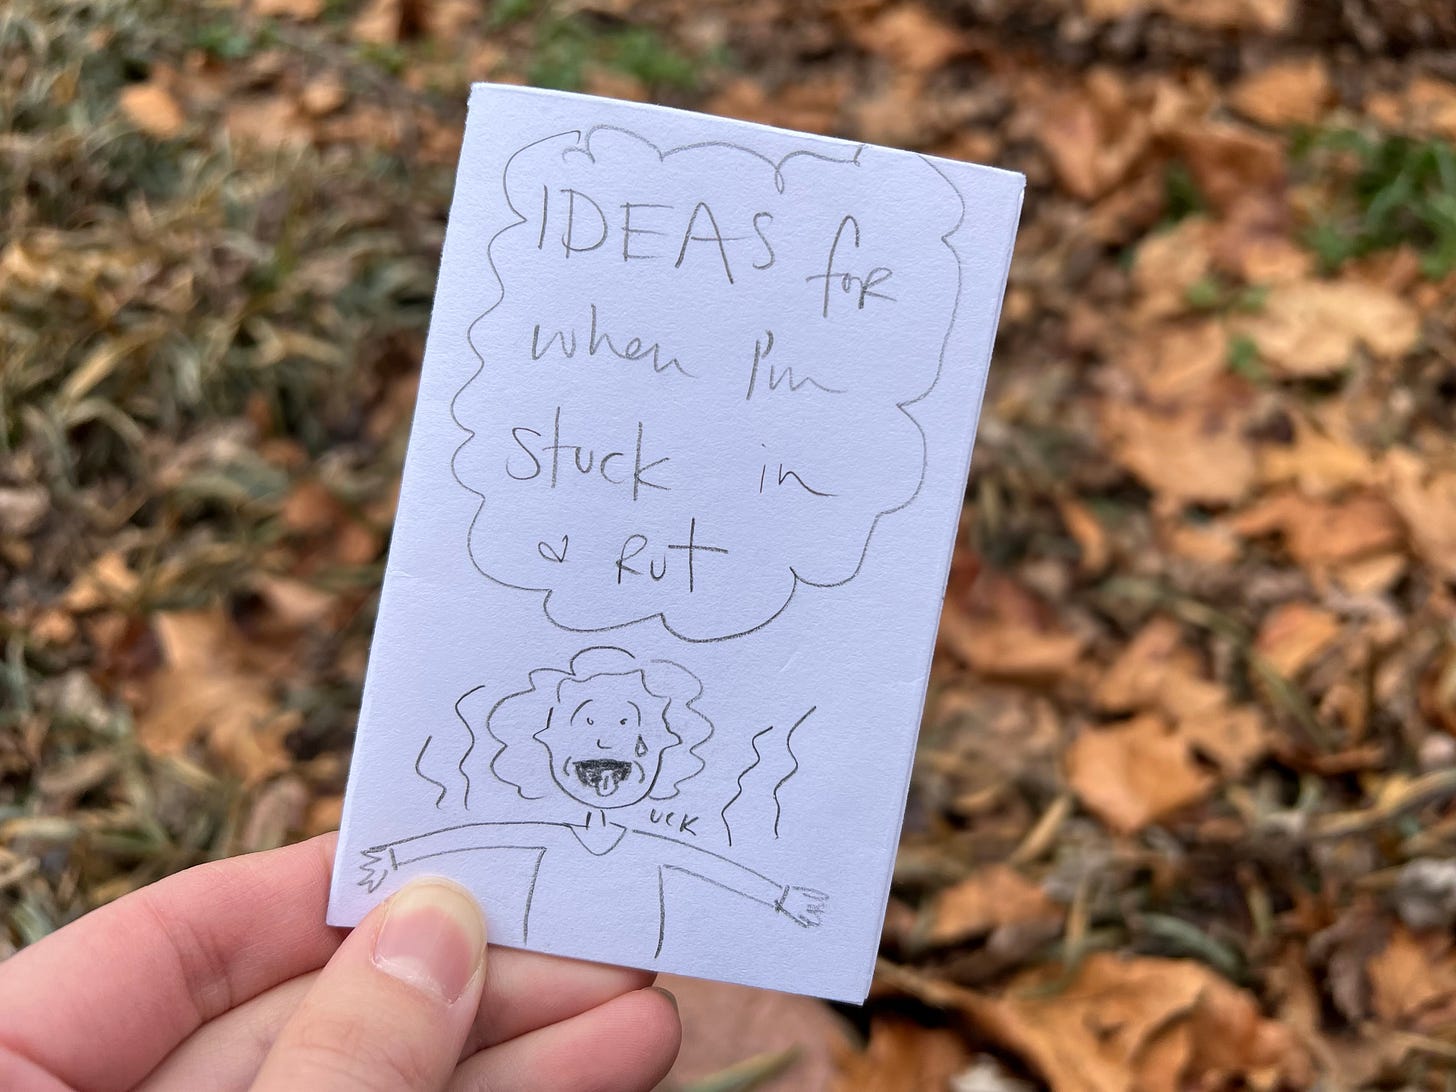 IDEAS for
when I'm
stuck in
a Rut
UCK